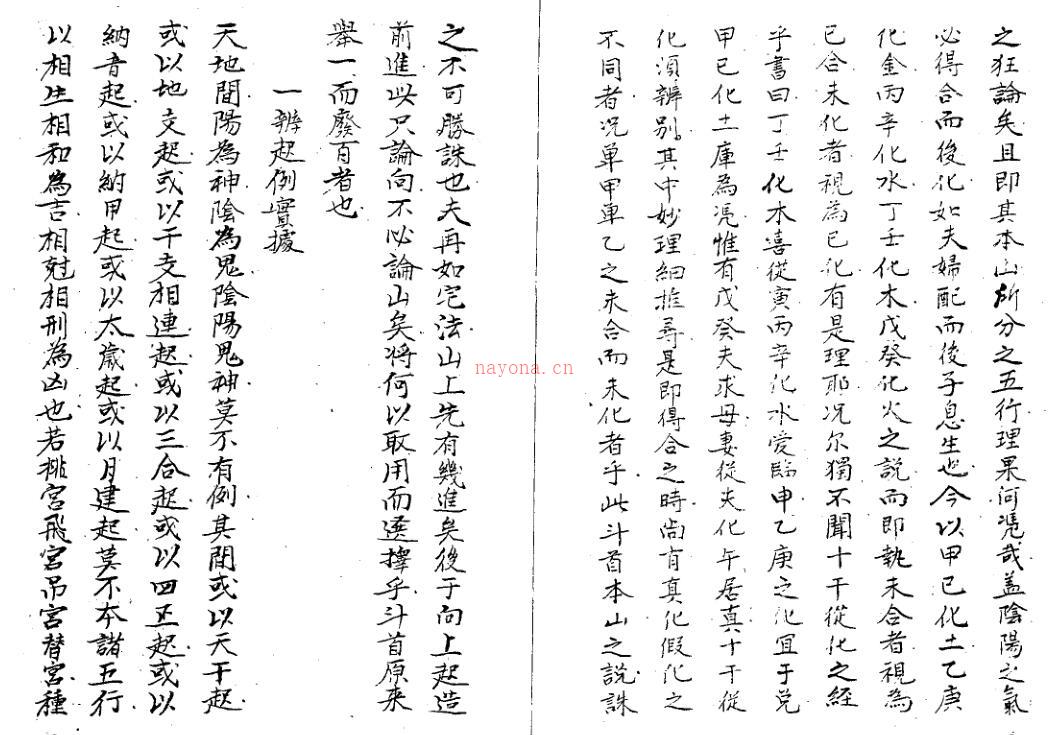 之狂論矣且即其本山所分之五行理果何凴哉盖陰陽之氣
必得合而後化如夫婦配而後子息生也今以甲己化土乙庚
化金丙辛化水丁壬化木戊癸化火之說而即執未合者視為
已合未化者視為已化有是理耶况尔獨不聞十干從化之經
乎書曰丁壬化木喜從寅丙辛化水爱臨申乙庚之化宜于兑
甲己化土庫為凴惟有戊癸夫求母妻從夫化午居真十干從
化須辨别其中妙理細推尋是即得合之時尚有真化假化之
不同者况单甲单乙之未合而未化者乎此斗首本山之說誅
之不可勝誅也夫再如宅法山上先有幾進矣後于向上起造
前進此只論向不必論山矣將何以取用而選擇乎斗首原来
舉一而廢百者也
一辨起例實據
天地間陽為神陰為鬼陰陽鬼神莫不有例其間或以天干起
或以地支起或以干支相連起或以三合起或以四正起或以
納音起或以納甲起或以太歲起或以月建起莫不本諸五行
以相生相和為吉相尅相刑為凶也若挑宫飛宫吊宫替宫種
nayona.cn